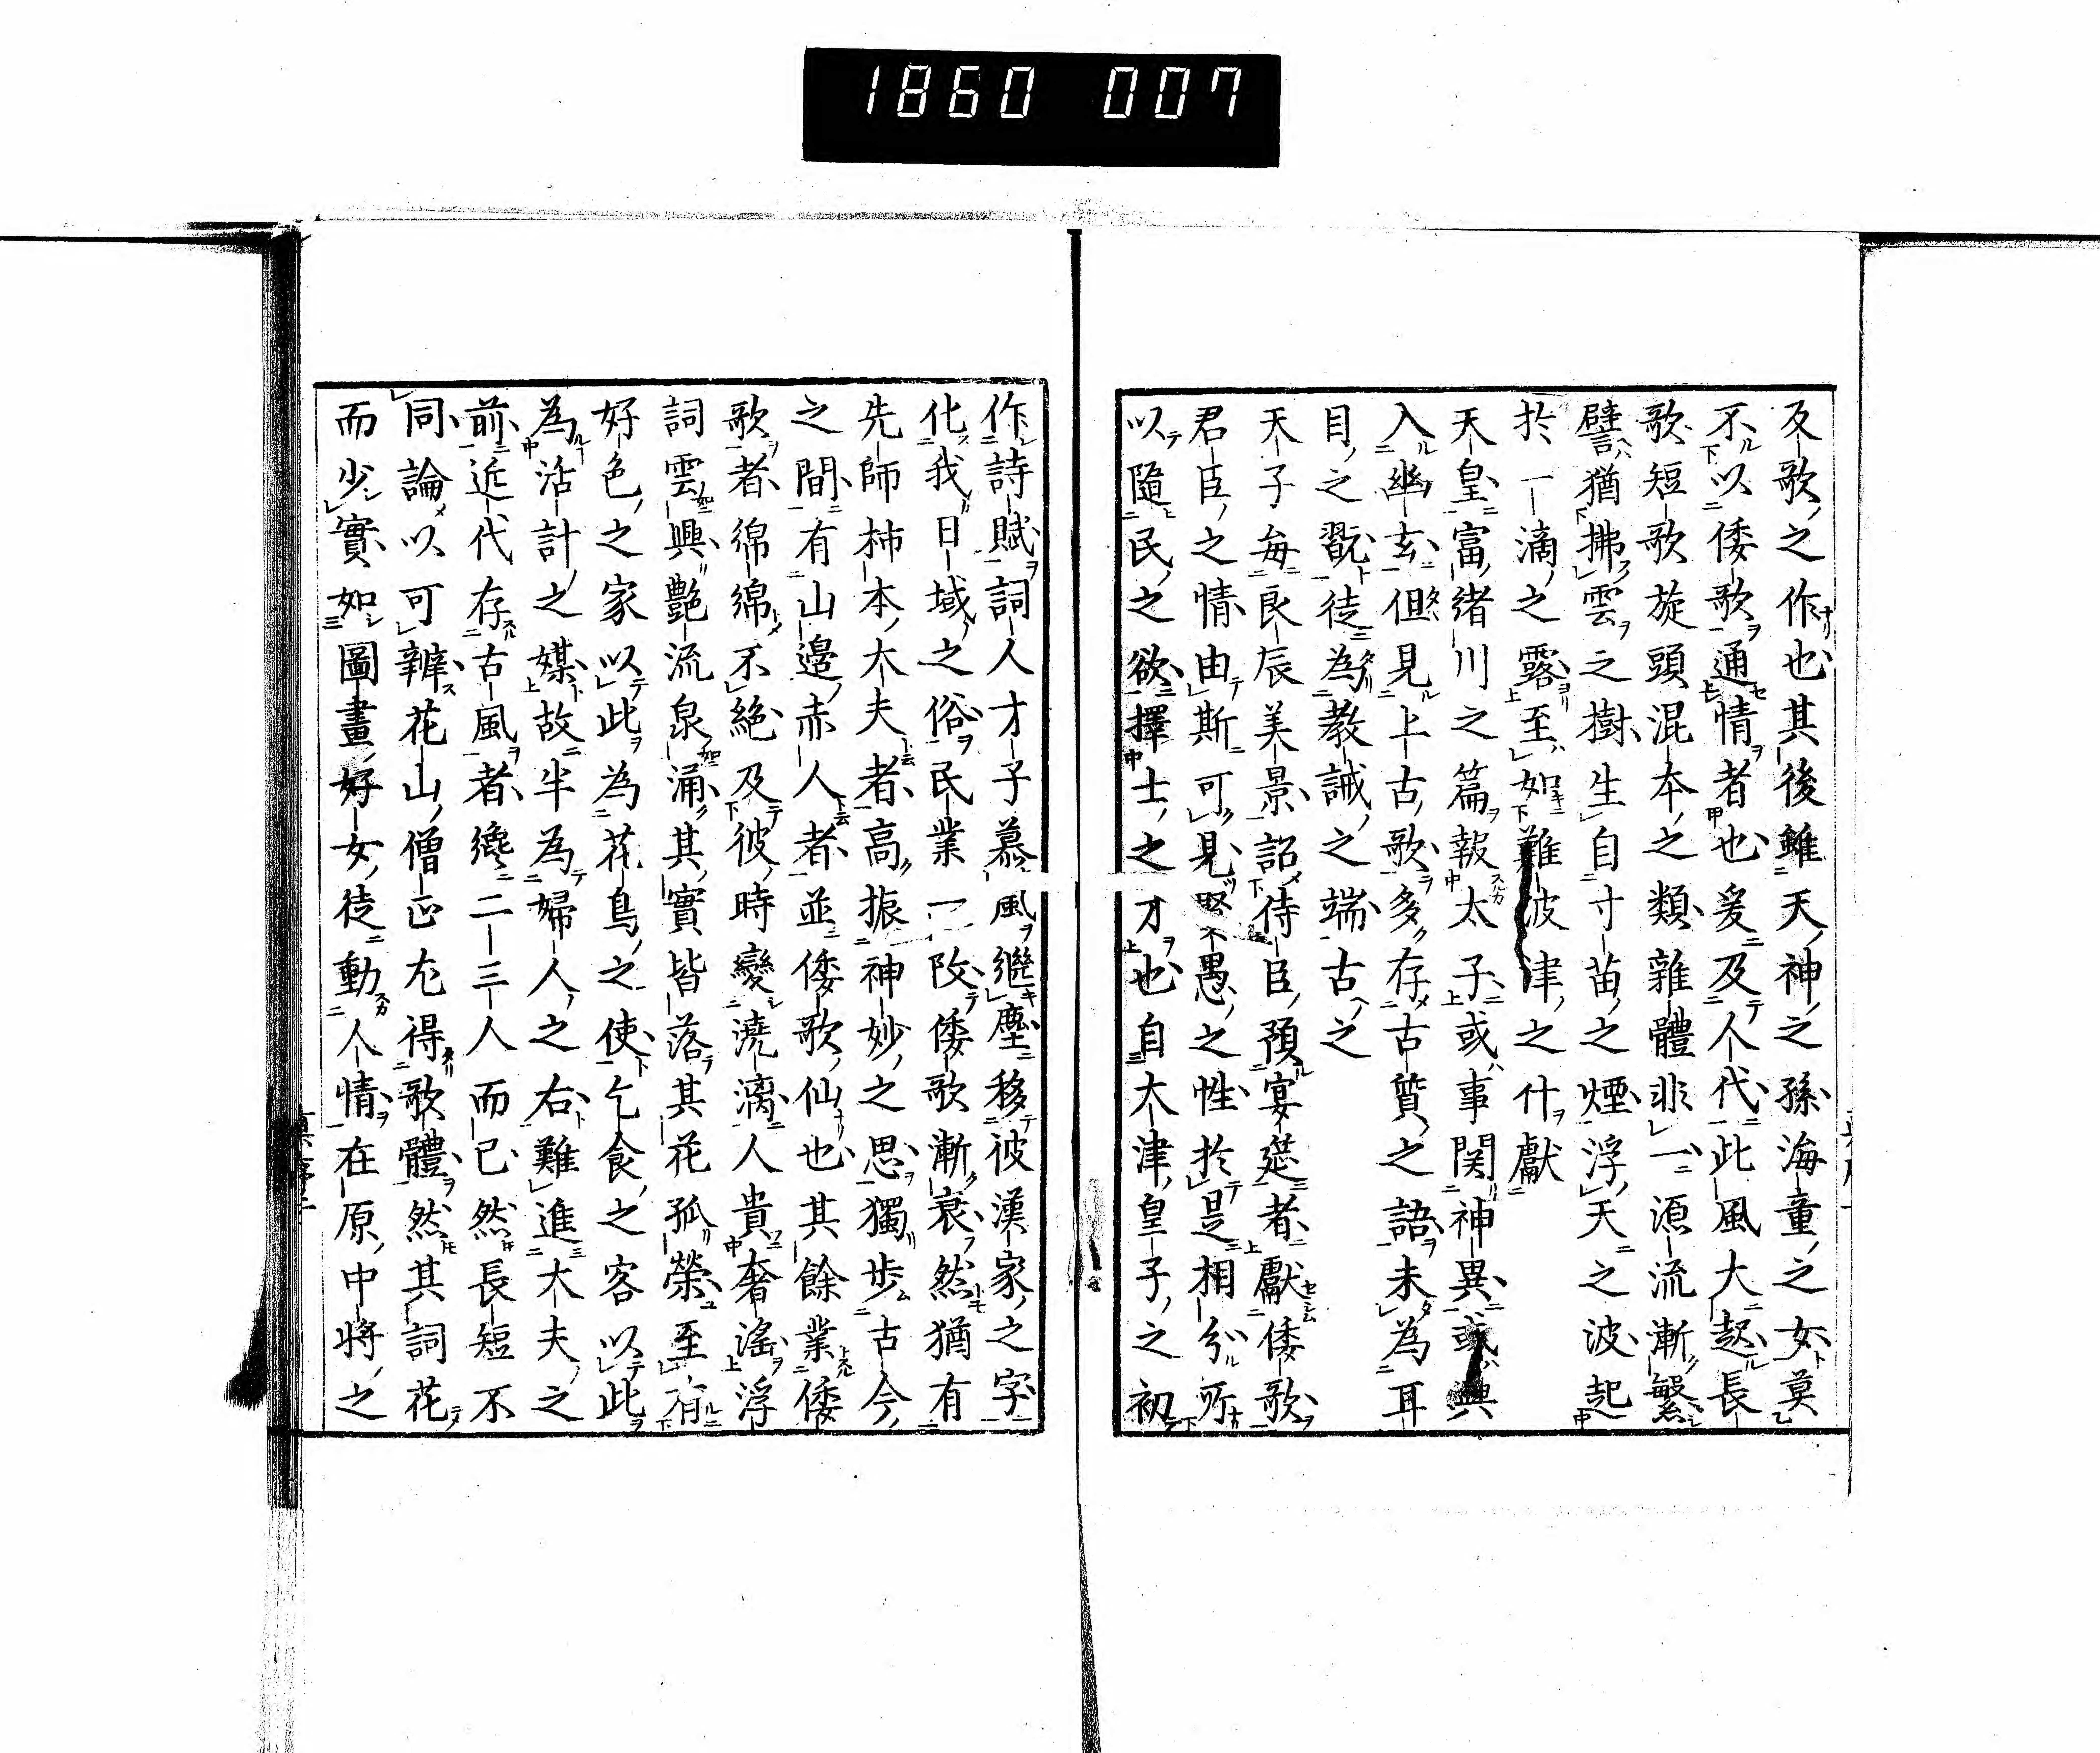 1860 007
反歌之作也其後雖天神之孫海童之女莫
不以倭歌通情者也爰及人代此風大起長
歌短歌旋頭混本之類雜體非一源流漸繁
譬猶拂雲之樹生自寸苗之煙浮天之波起
於一滴之露至如難波津之什獻
天皇富緒川之篇報太子或事関神異或興
入幽玄但見上古歌多存古質之語未為耳
目之翫徒為教誡之端古之
天子每良辰美景詔侍臣預宴莚者獻倭歌
君臣之情由斯可見賢愚之性於是相分所
以隨民之欲擇士之才也自大津皇子之初
作詩賦詞人才子慕風継塵移彼漢家之字
化我日域之俗民業一改倭歌漸衰然猶有
先師柿本大夫者高振神妙之思獨步古今
之間有山邊赤人者並倭歌仙也其餘業倭
歌者綿綿不絶及彼時變澆漓人貴奢淫浮
詞雲興艶流泉涌其實皆落其花孤榮至有
好色之家以此為花鳥之使乞食之客以此
為活計之媒故半為婦人之右難進大夫之
前近代存古風者纔二三人而已然長短不
同論以可辨花山僧正尤得歌體然其詞花
而少實如圖畫好女徒動人情在原中將之